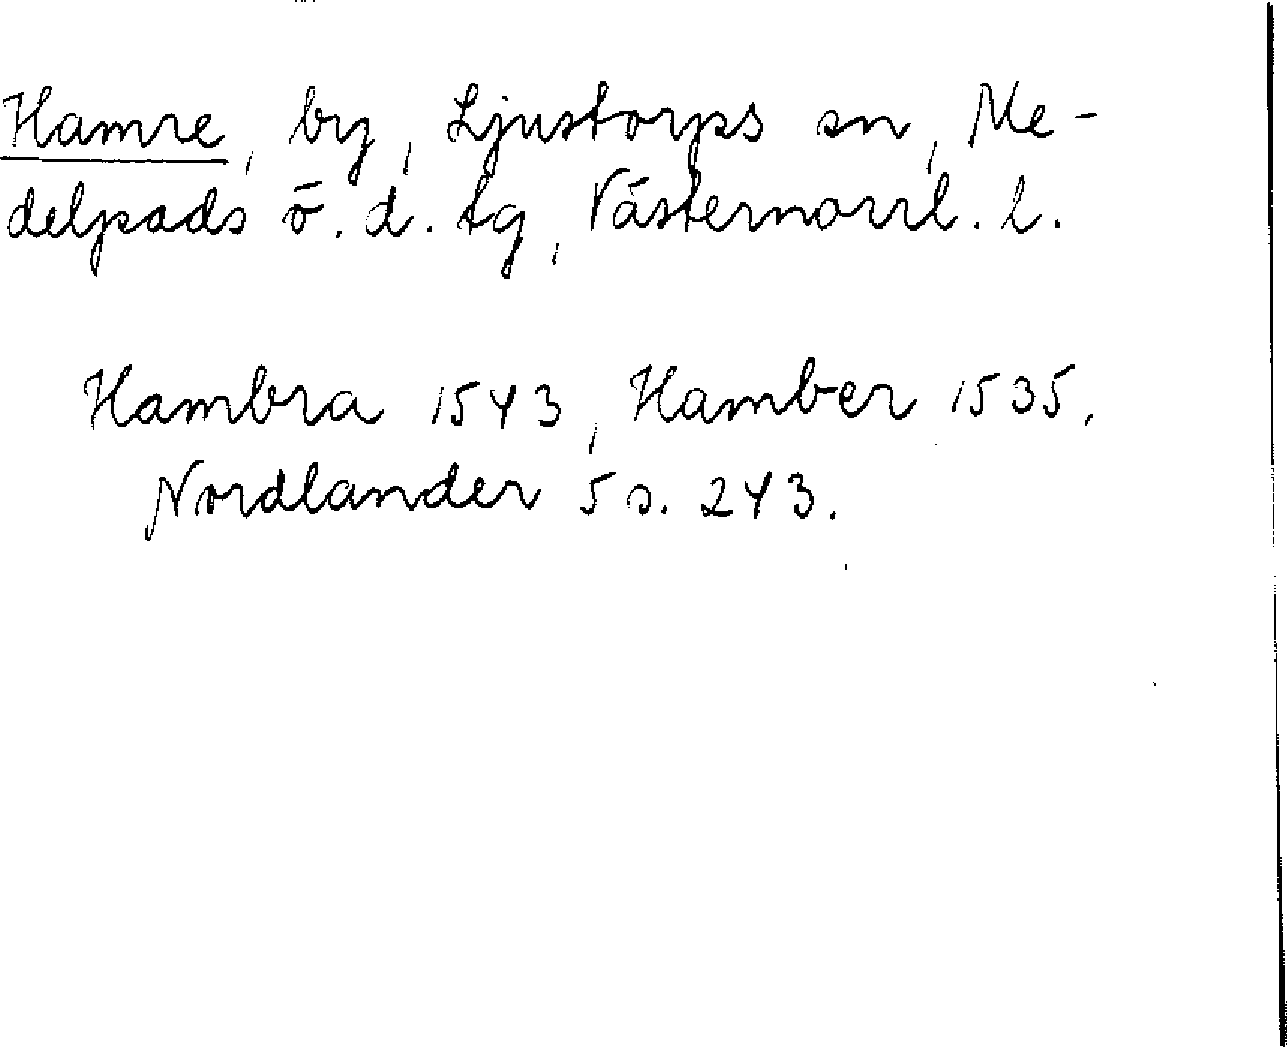 Hamre, by, Ljustorps sn, Me-
delpads ö. d. tg, Västernorrl. l.
Hambra 1543, Hamber 1535.
Nordlander 5 s. 243.